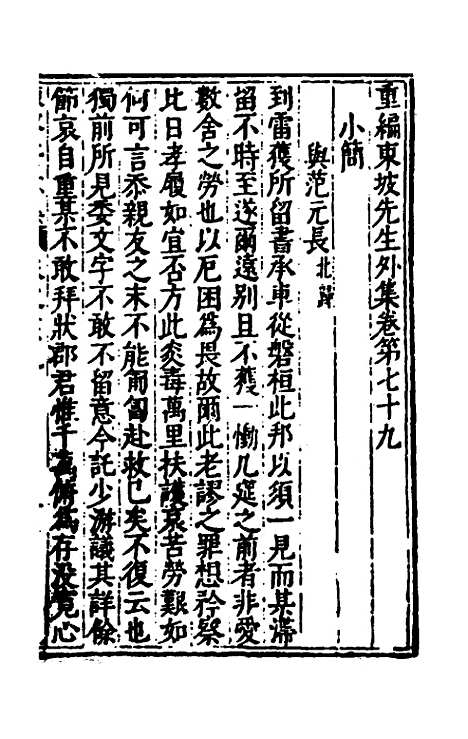 重編東坡先生外集卷第七十九
小簡
與范元長北歸
到雷獲所留書承車從盤桓此邦以須一見而某滯
留不時至遂爾遠別且不獲一慟几筵之前者非愛
數舍之勞也以厄困為畏故爾此老謬之罪想矜察
比日孝履如宜否方此炎毒萬里扶護哀苦勞艱如
何可言忝親友之末不能匍匐赴救已矣不復云也
獨前所見委文字不敢不留意今託少游議其詳餘
節哀自重某不敢拜狀郡君惟千萬俯為存没寬心